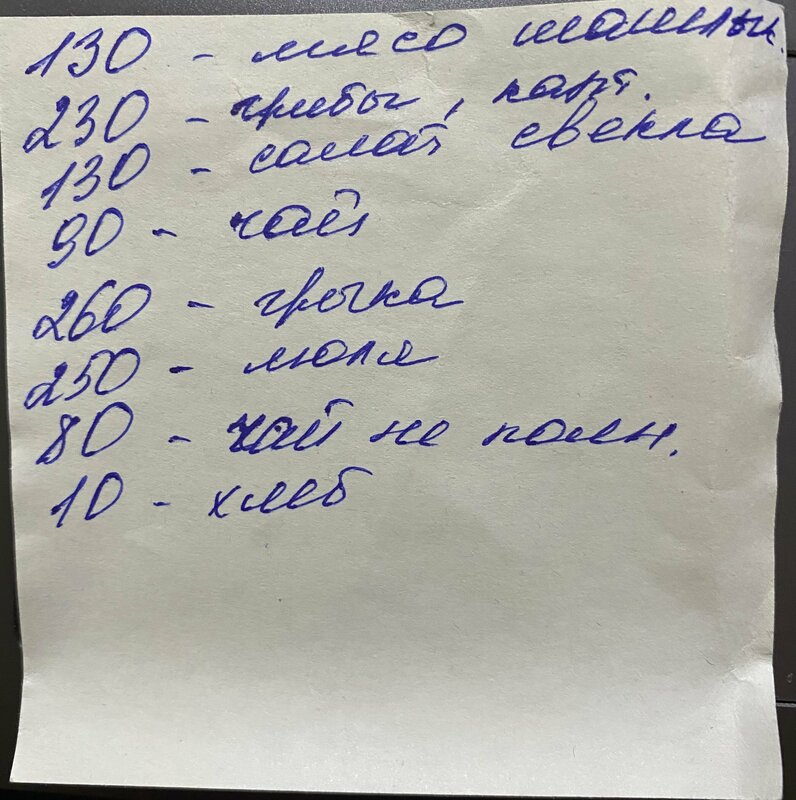 130 - мясо шашлык.
230 - грибы, карт.
130 - салат свекла
90 - чай
260 - гречка
250 - люля
80 - чай не полн.
10 - хлеб